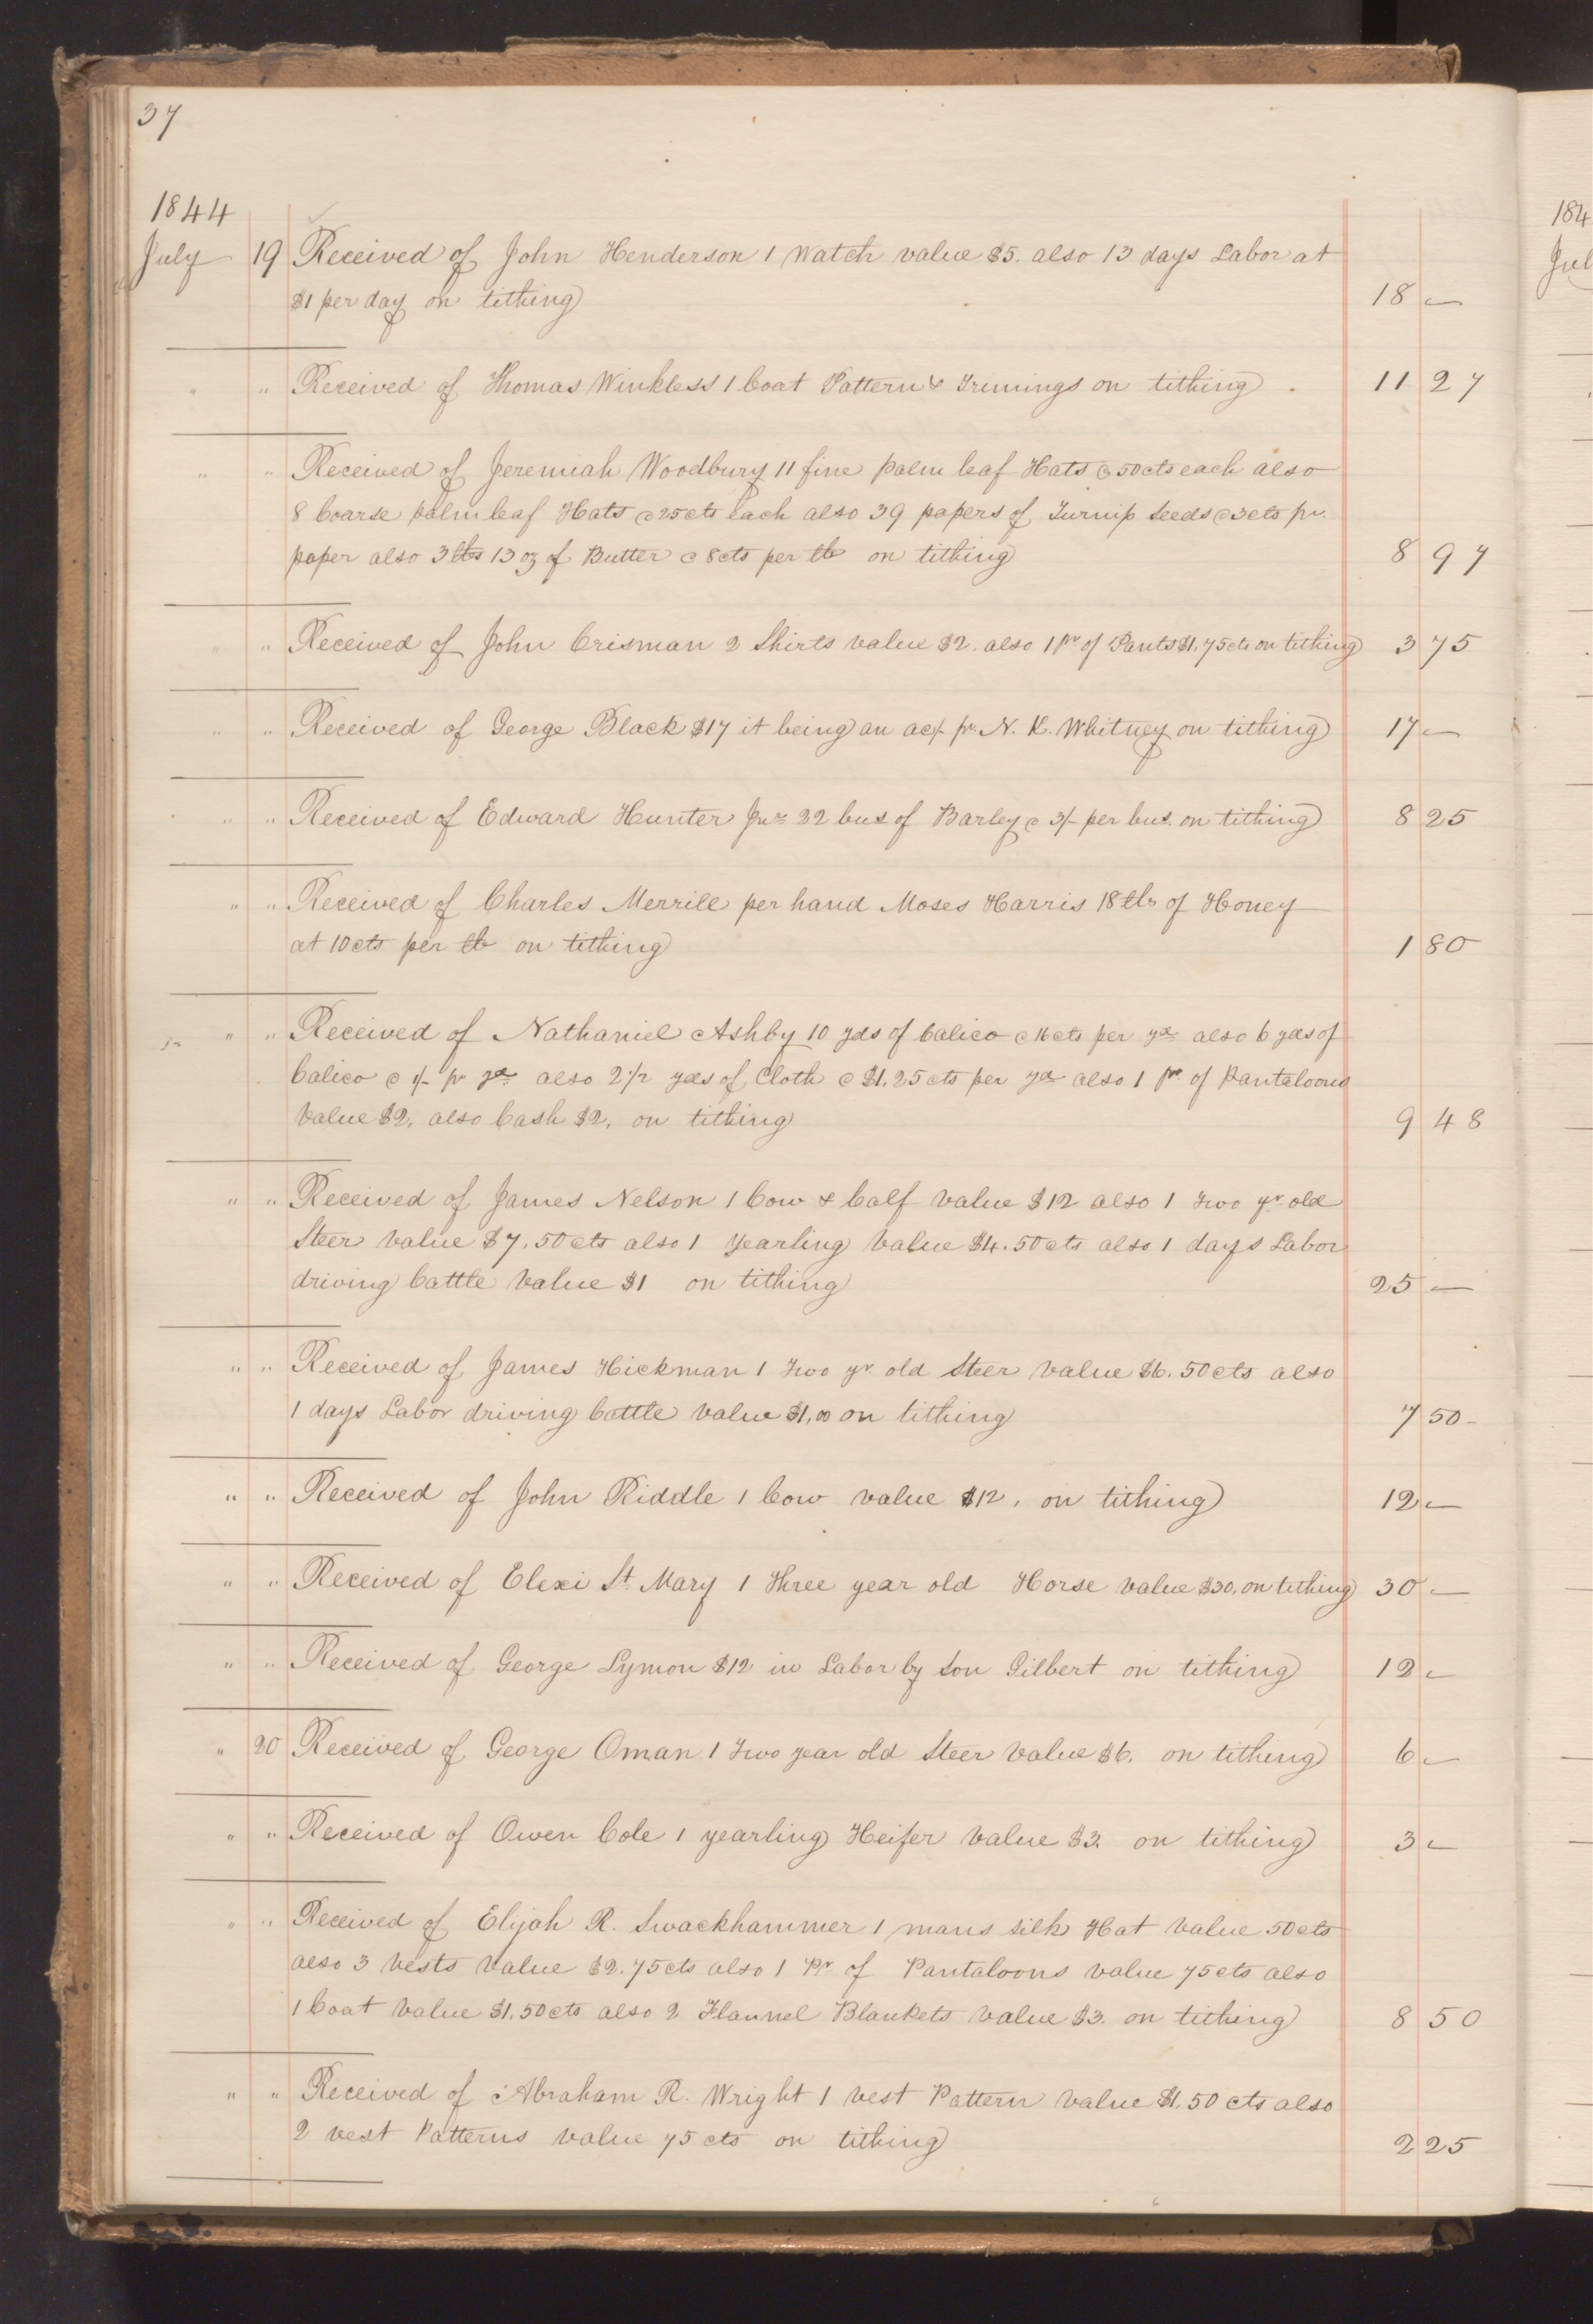 37
1844
July 19 Received of John Henderson 1 Watch value $5. also 13 days Labor at
$1 per day on tithing 18 —
" " Received of Thomas Winkless 1 Coat Pattern & Trimings on tithing . 11 27
" " Received of Jeremiah Woodbury 11 fine palm leaf Hats @ 50cts each also
8 Coarse palm leaf Hats @ 25cts each also 39 papers of Turnip Seeds @ 3cts pr.
paper also 3 lbs 13 oz of Butter @ 8cts per lb on tithing 8 97
" " Received of John Crisman 2 Shirts value $2. also 1 pr of Pants $1.75cts on tithing 3 75
" " Received of George Black $17 it being an ac/. pr. N. K. Whitney on tithing 17 —
" " Received of Edward Hunter Junr 22 bus of Barley @ 3/- per bus. on tithing 8 25
" " Received of Charles Merrill per hand Moses Harris 18 lbs of Honey
at 10cts per lb on tithing 1 80
" " Received of Nathaniel Ashby 10 yds of Calico @ 16cts per yd also 6 yds of
Calico @ 1/- pr yd also 2 1/2 yds of Cloth @ $1.25cts per yd also 1 pr of Pantaloons
Value $2, also Cash $2, on tithing 9 48
" " Received of James Nelson 1 Cow & Calf Value $12 also 1 Two yr old
Steer Value $7.50cts also 1 Yearling Value $4.50cts also 1 days Labor
driving Cattle Value $1 on tithing 25 —
" " Received of James Hickman 1 Two yr old Steer Value $6.50cts also
1 days Labor driving Cattle Value $1,00 on tithing 7 50-
" " Received of John Riddle 1 Cow value $12, on tithing 12 —
" " Received of Elexi St. Mary 1 Three year old Horse Value $30, on tithing 30 —
" " Received of George Lymon $12 in Labor by Son Gilbert on tithing 12 —
" 20 Received of George Oman 1 Two year old Steer Value $6. on tithing 6 —
" " Received of Owen Cole 1 yearling Heifer Value $3. on tithing 3 —
" " Received of Elijah R. Swackhammer 1 mans silk Hat Value 50cts
also 3 Vests Value $2.75cts also 1 Pr of Pantaloons value 75cts also
1 Coat Value $1.50cts also 2 Flannel Blankets Value $3. on tithing 8 50
" " Received of Abraham R. Wright 1 vest Pattern Value $1.50 cts also
2 vest Patterns value 75 cts on tithing 2 25
184
Jul